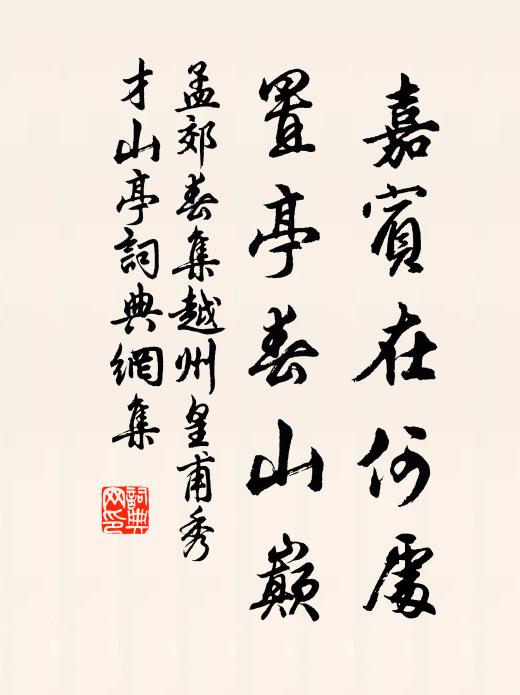 嘉賓在何處
置亭春山巔
孟郊春集越州皇甫秀
才山亭詞典網集
詞典
网印